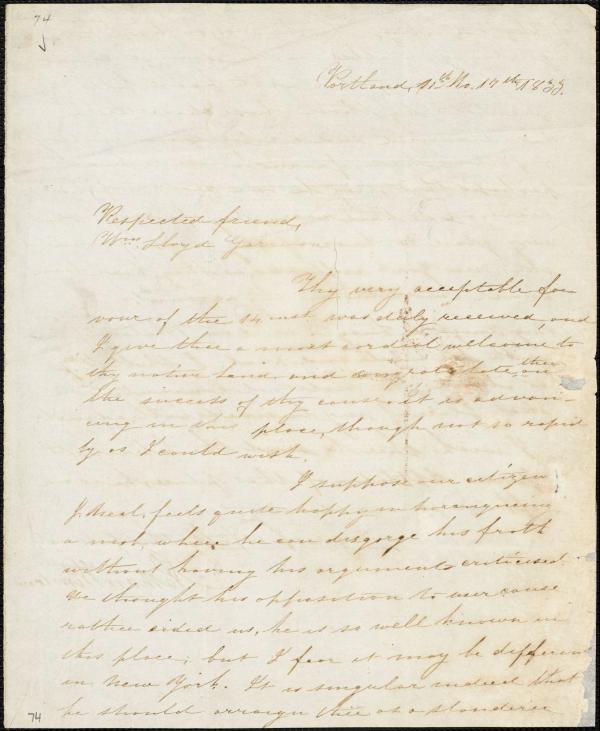 74
Portland, 11th Mo. 17th 1833.
Respected friend,
Wm Lloyd Garrison
Thy very acceptable fa-
vour of the 14 inst was duly received, and
I give thee a most cordial welcome to
thy native land and congratulate thee on
the success of thy cause. It is advan-
cing in this place, though not so rapid
ly as I could wish.
I suppose our citizen
J. Neal, feels quite happy in haranguing
a mob, where he can disgorge his froth
without having his arguments criticised.
We thought his opposition to our cause
rather aided us, he is so well known in
this place; but I fear it may be different
in New York. It is singular indeed that
he should arraign thee as a slanderer
74